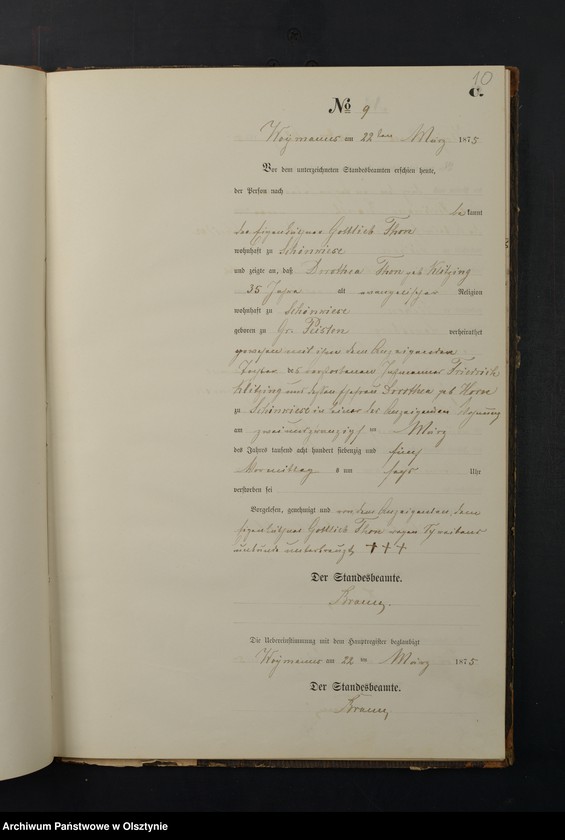 10
C.
No 9
Woymanns am 22ten März 1875
Vor dem unterzeichneten Standesbeamten erschien heute,
der Person nach
bekannt
der Eigenkäthner Gottlieb Thon
wohnhaft zu Schönwiese
und zeigte an, daß Dorothea Thon geb Klitzing
35 Jahre alt evangelischer Religion
wohnhaft zu Schönwiese
geboren zu Gr. Peisten verheirathet
gewesen mit ihm dem Anzeigenden
Tochter des verstorbenen Friedrich
Klitzing und dessen Ehefrau Dorothea geb Horn
zu Schönwiese in seiner des Anzeigenden Wohnung
am zweiundzwanzigsten März
des Jahres tausend acht hundert siebenzig und fünf
Vormittag s um sechs Uhr
verstorben sei
Vorgelesen, genehmigt und von dem Anzeigenden, dem
Eigenkäthner Gottlieb Thon wegen Schreibens
unkunde unterkreuzt +++
Der Standesbeamte.
Die Uebereinstimmung mit dem Hauptregister beglaubigt
Woymanns am 22 ten März 1875.
Der Standesbeamte.
Archiwum Państwowe w Olsztynie